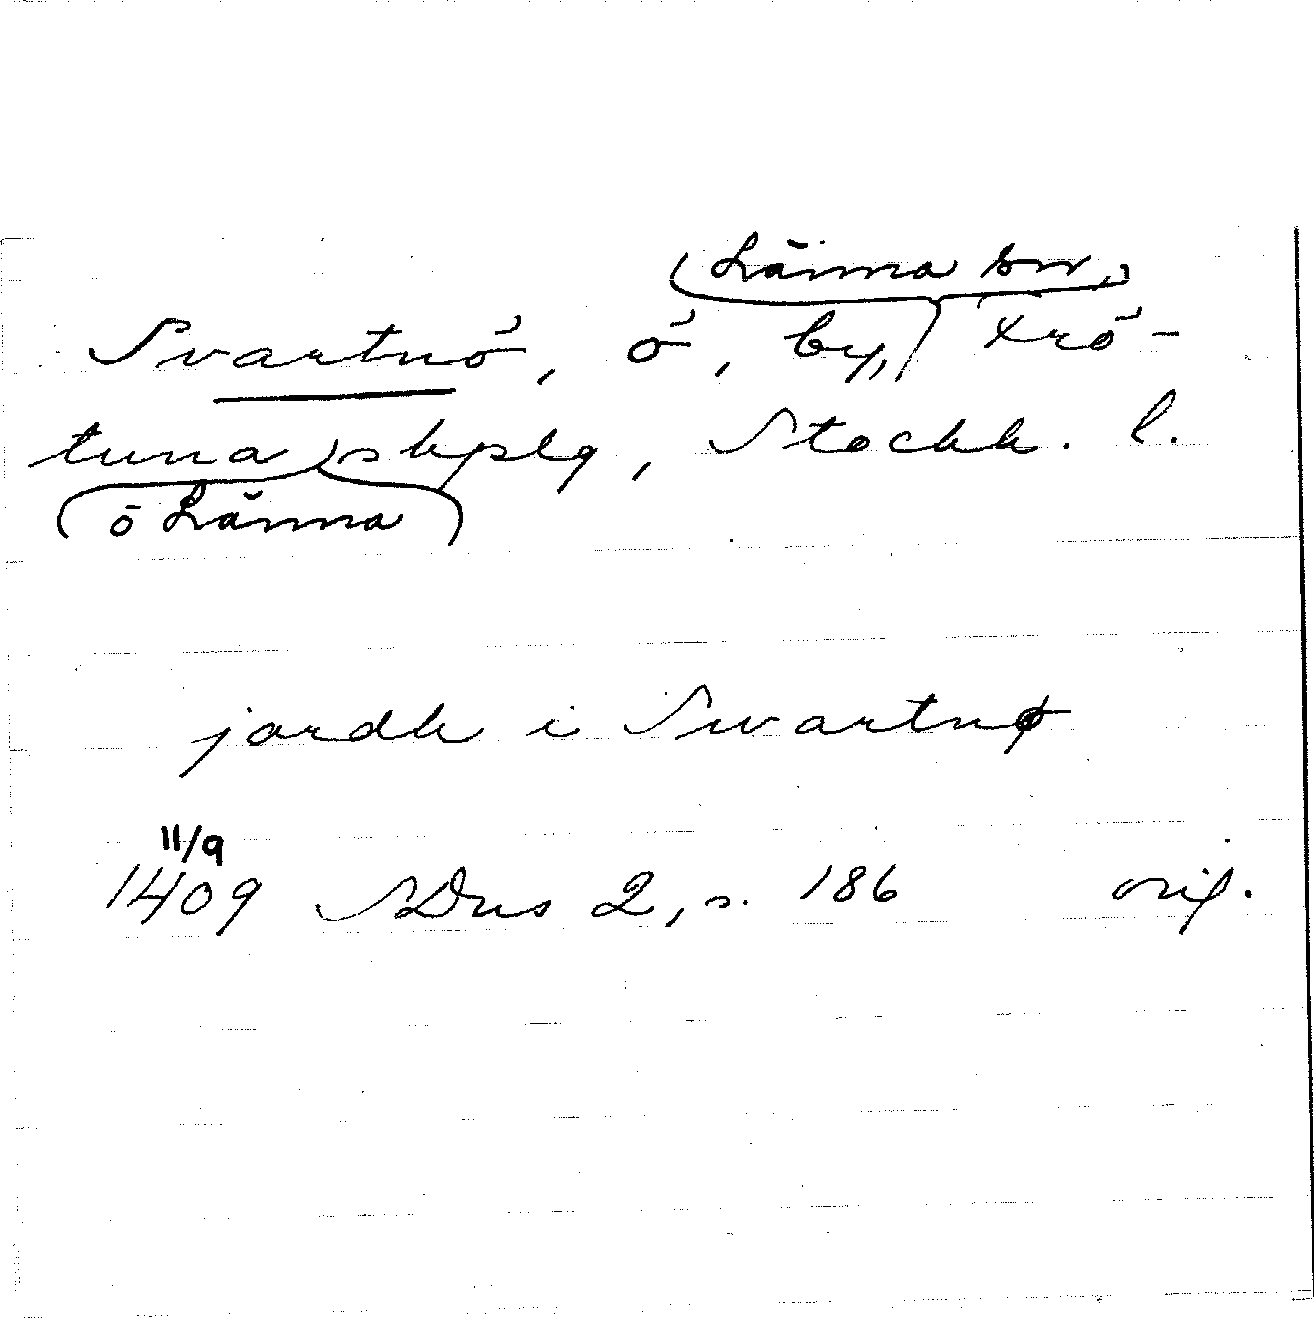 Länna sn,
Svartnö, ö, by, Frö-
tuna skplg, Stockh. l.
o Länna
jordh i Swartnø
11/9
1409 SDns 2, s. 186 orig.